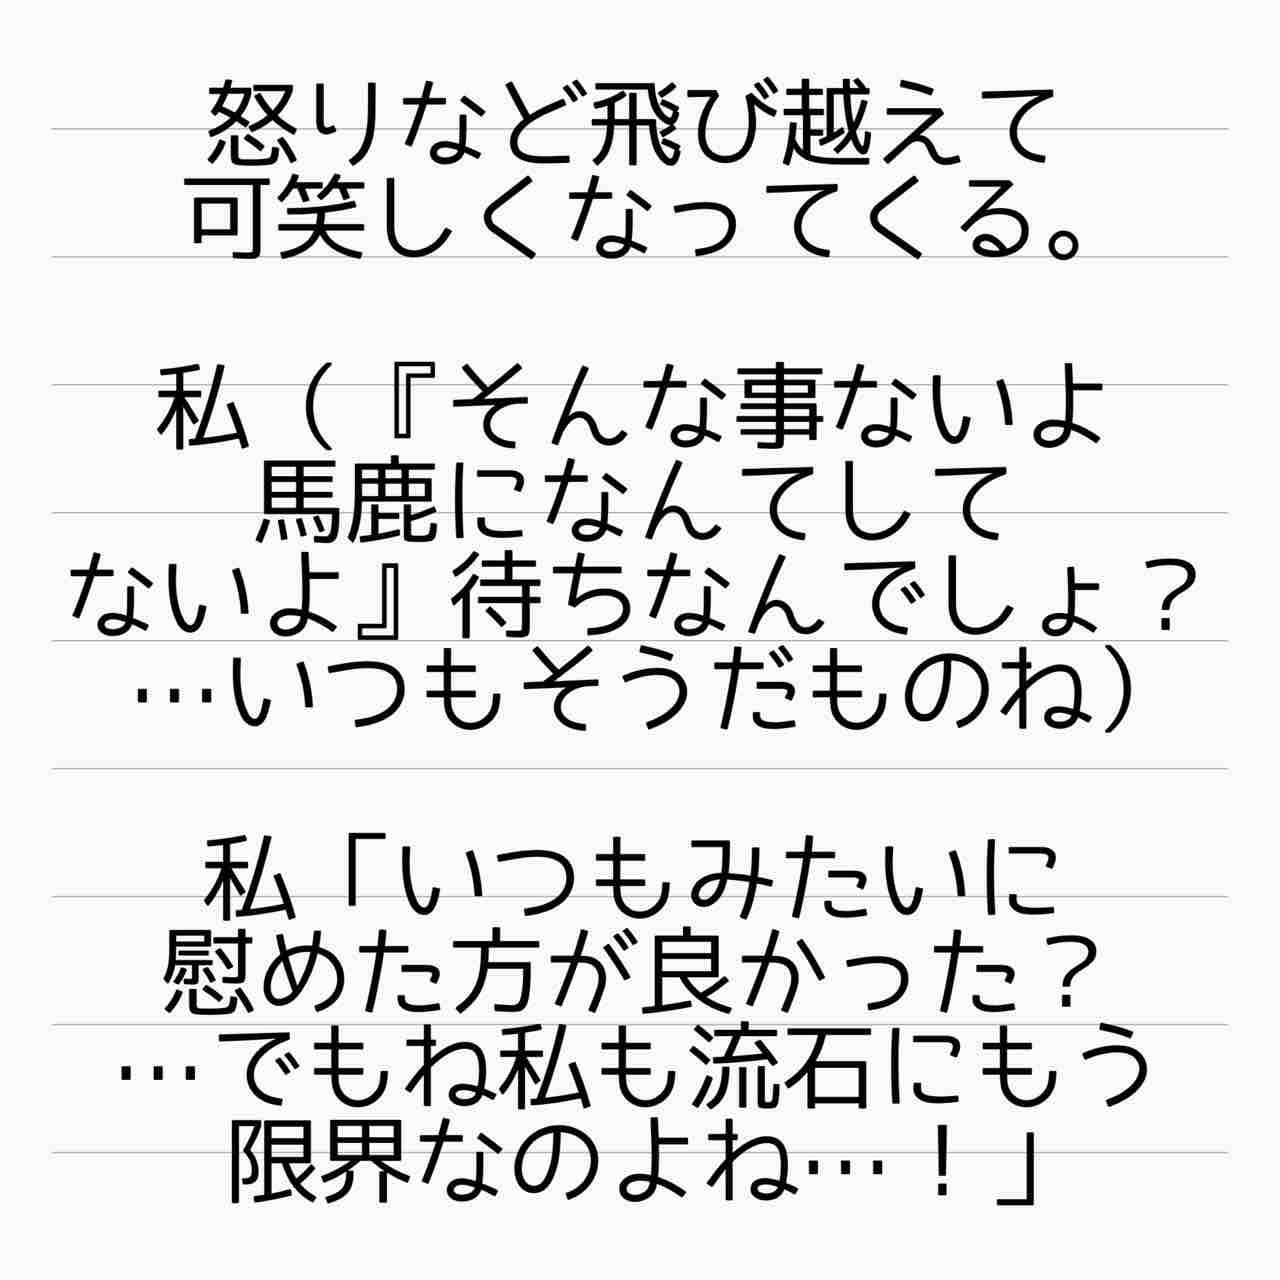 怒りなど飛び越えて
可笑しくなってくる。
私（『そんな事ないよ
馬鹿になんてして
ないよ』待ちなんでしょ？
…いつもそうだものね）
私「いつもみたいに
慰めた方が良かった？
…でもね私も流石にもう
限界なのよね…！」